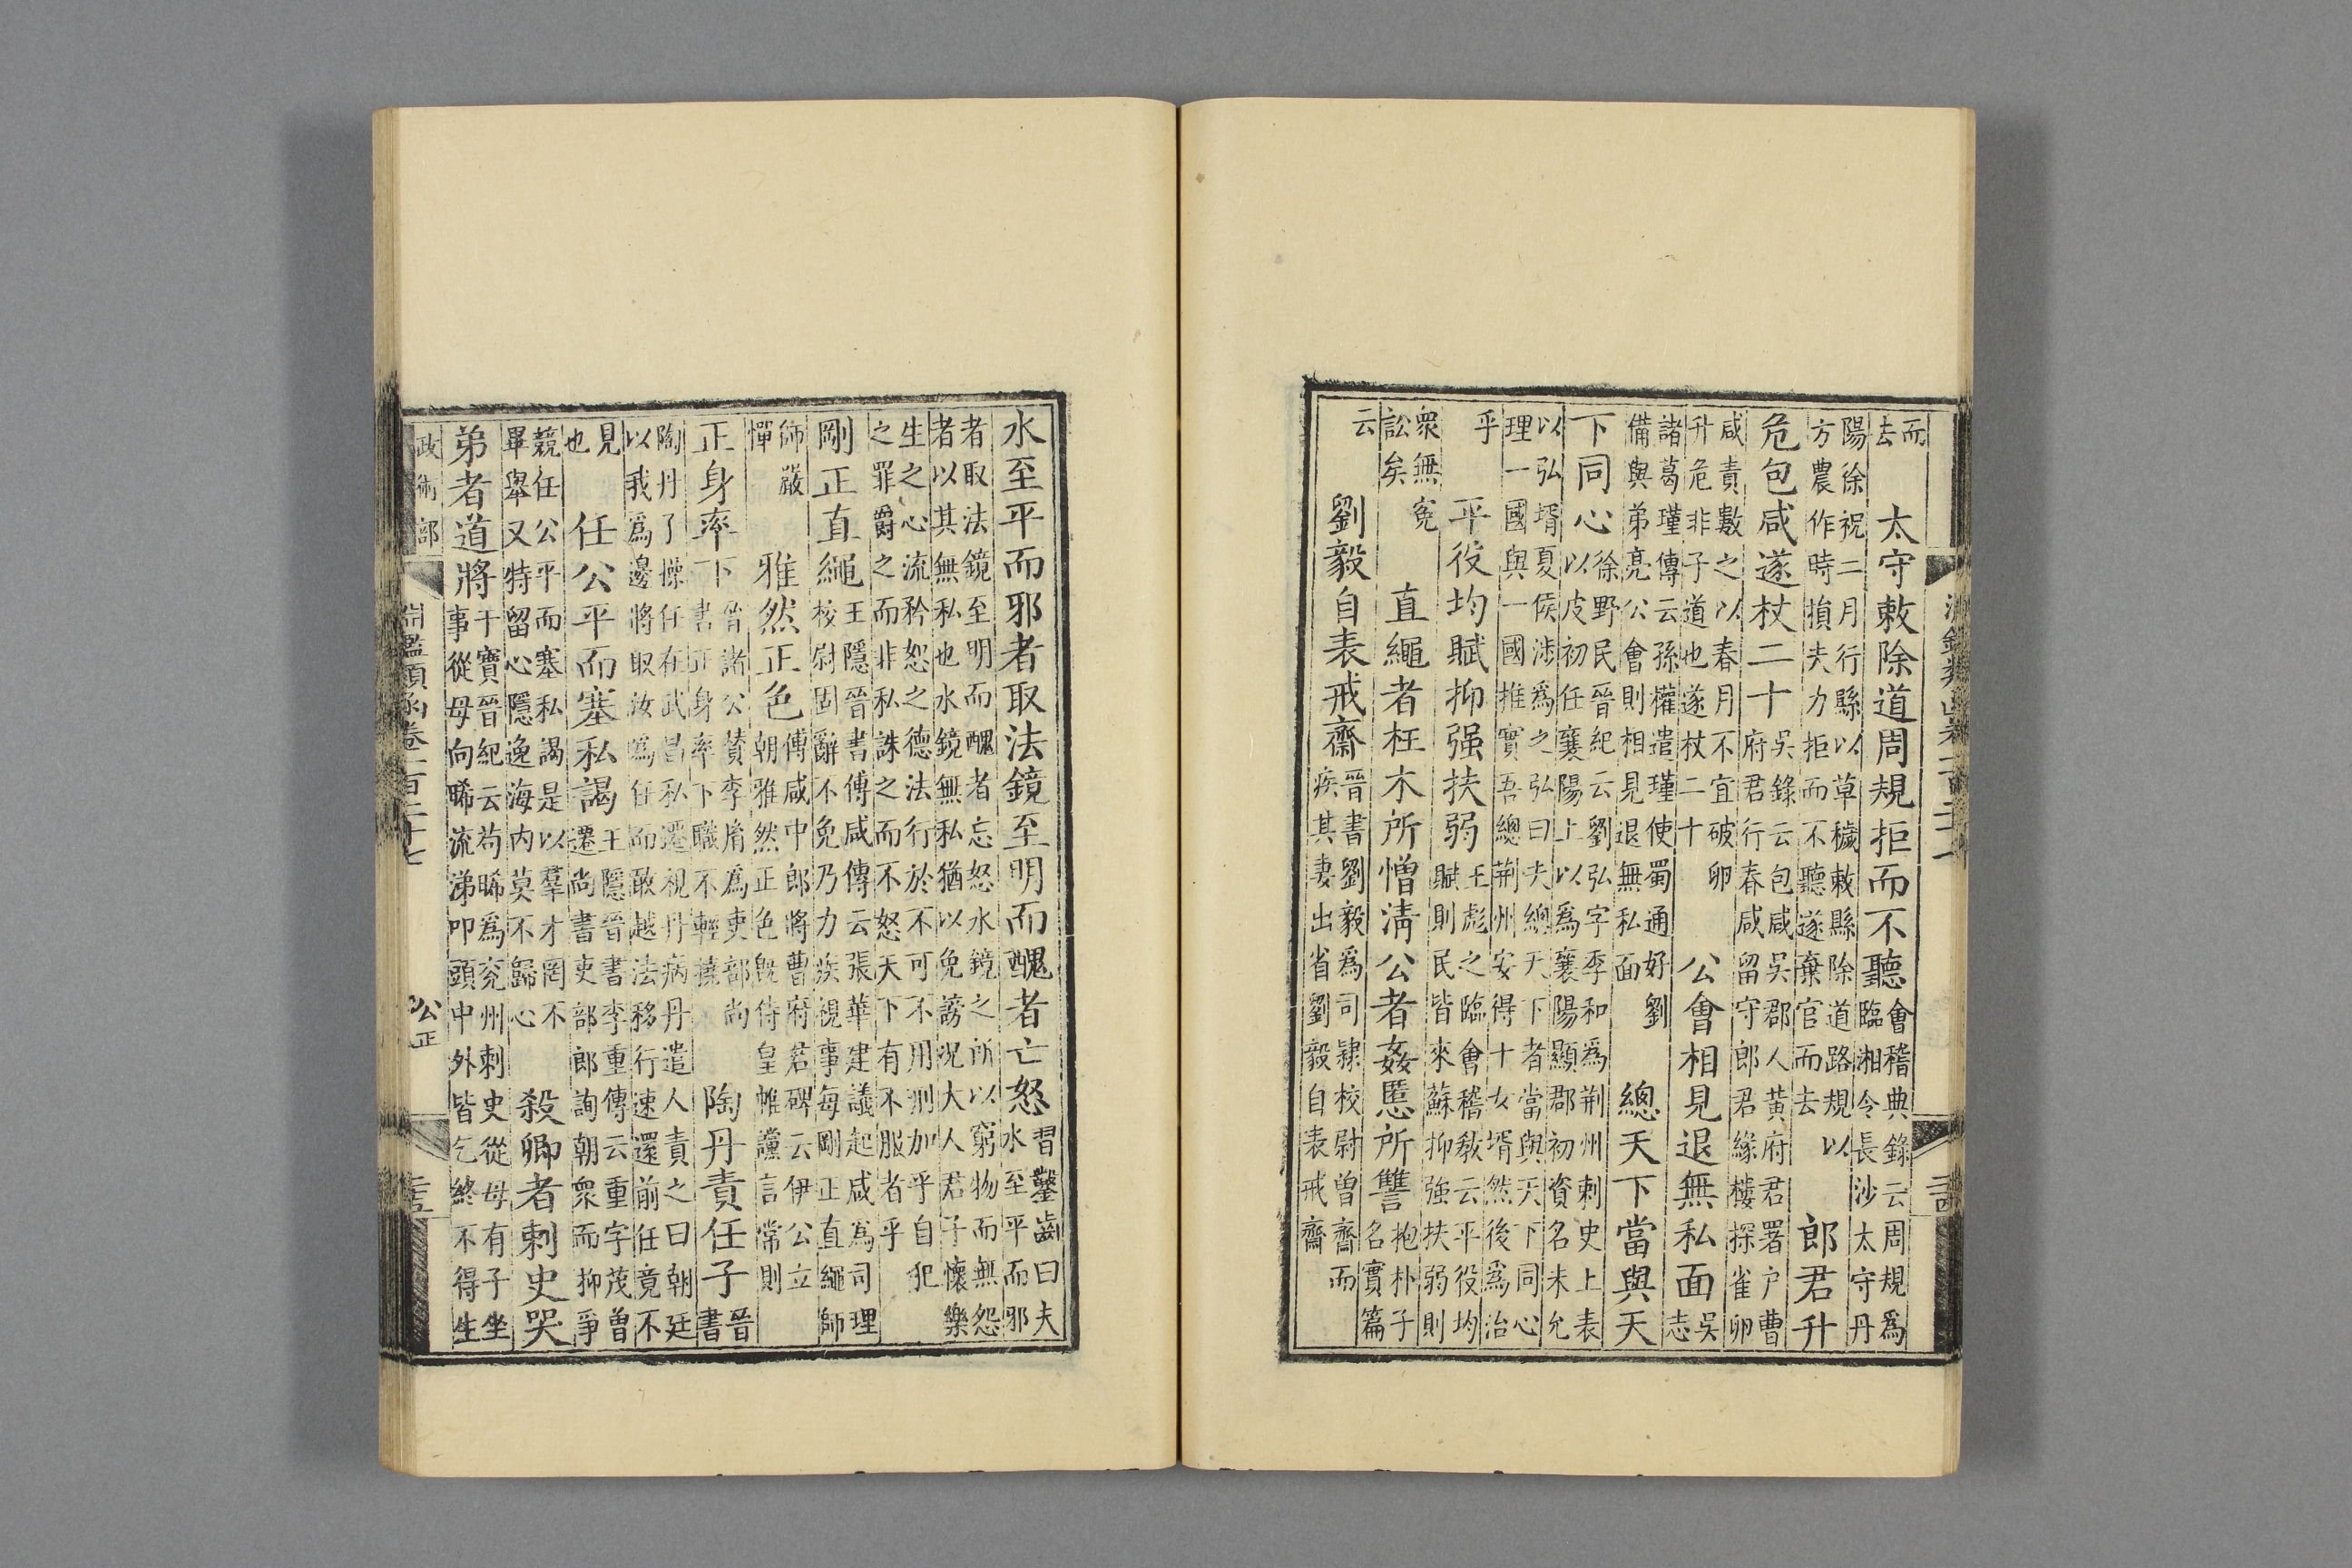 而去　太守敕除道周規拒而不聽會稽典錄云周規為臨湘令長沙太守丹
陽徐祝二月行縣以草穢敕縣除道路規以方農作時損夫力拒而不聽遂棄官而去　郎君升
危包咸遂杖二十吳錄云包咸吳郡人黃府君署戶曹府君行春咸留守郎君緣樓探雀卵
咸責數之以春月不宜破卵升危非子道也遂杖二十　公會相見退無私面吳志
諸葛瑾傳云孫權遣瑾使蜀通好劉備與弟亮公會則相見退無私面　總天下當與天
下同心徐野民晉紀云劉弘字季和為荊州刺史上表以皮初任襄陽上以為襄陽顯郡初資名未允
以弘壻夏侯涉為之弘曰夫總天下者當與天下同心理一國與一國推實吾總荊州安得十女壻然後為治
乎　平役均賦抑强扶弱王彪之臨會稽教云平役均賦則民皆來蘇抑強扶弱則
衆無寃訟矣　直繩者枉木所憎淸公者姦慝所讐抱朴子名實篇
云　劉毅自表戒齋晉書劉毅為司隸校尉曽齋而疾其妻出省劉毅自表戒齋
水至平而邪者取法鏡至明而醜者亡怒習鑿齒曰夫水至平而邪
者取法鏡至明而醜者忘怒水鏡之所以窮物而無怨者以其無私也水鏡無私猶以免謗況大人君子懷樂
生之心流矜恕之德法行於不可不用刑加乎自犯之罪爵之而非私誅之而不怒天下有不服者乎
剛正直繩王隱晉書傅咸傳云張華建議起咸為司理校尉固辭不免乃力疾視事每剛正直繩師
師嚴憚　雅然正色傅咸中郎將曹府君碑云伊公立朝雅然正色旣侍皇帷讜言常則
正身率下晉諸公贊李胤為吏部尚書正身率下職不輕撓　陶丹責任子晉書
陶丹了操任在武昌私還視丹病丹遣人責之曰朝廷以我為邊將取汝為任而敢越法移行速還前任竟不
見也　任公平而塞私謁王隱晉書李重傳云重字茂曽遷尚書吏部郎詢朝衆而抑爭
競任公平而塞私謁是以羣才罔不畢舉又特留心隱逸海内莫不歸心　殺卿者刺史哭
弟者道將干寶晉紀云苟晞為兖州刺史從母有子坐事從母向晞流涕叩頭中外皆乞終不得生
政術部　淵鑑類函卷一百二十七　公正